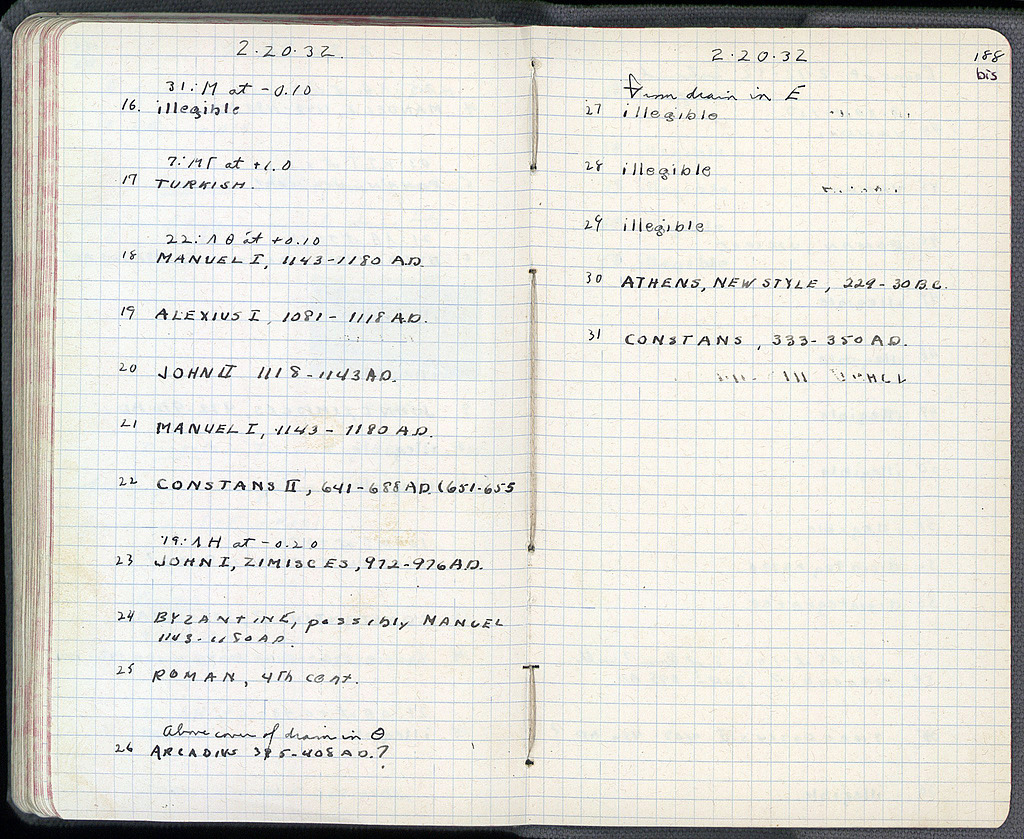 2.20.32.
31:M at -0.10
16. illegible
7:MΓ at +1.0
17 TURKISH.
22:Λ Θ at +0.10
18 MANUEL I, 1143-1180 A.D.
19 ALEXIUS I, 1081-1118 A.D.
20 JOHN II 1118-1143 A.D.
21 MANUEL I, 1143-1180 A.D.
22 CONSTANS II, 641-688 A.D. (651-655
19:ΛH at -0.20
23 JOHN I, ZIMISCES, 972-976 A.D.
24 BYZANTINE, possibly MANUEL
1143-1180 A.D.
25 ROMAN, 4th cent.
Above cover of drain in Θ
26 ARCADIUS 395-408 A.D.?
2.20.32
188
bis
From drain in E
27 illegible
28 illegible
29 illegible
30 ATHENS, NEW STYLE, 229-30 B.C.
31 CONSTANS, 333-350 A.D.